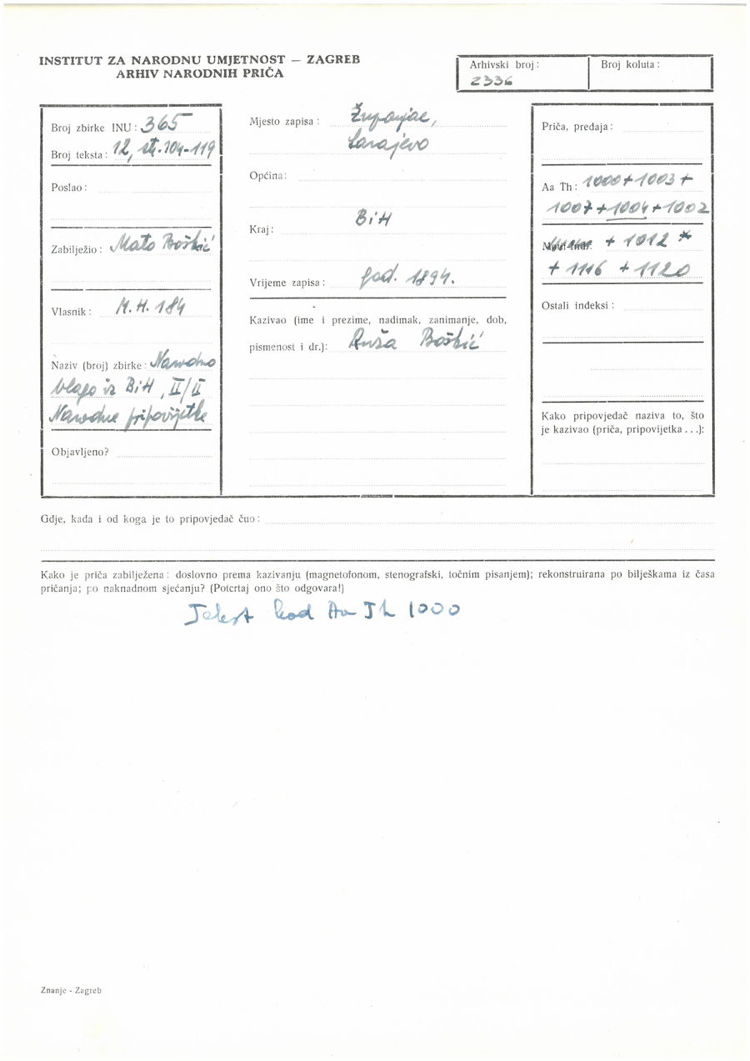 INSTITUT ZA NARODNU UMJETNOST — ZAGREB
ARHIV NARODNIH PRIČA
Arhivski broj:
2336
Broj koluta:
Broj zbirke INU: 365
Broj teksta: 12, str. 104-119
Poslao:
Zabilježio: Mato Boškić
Vlasnik: M.H. 184
Naziv (broj) zbirke: Narodno
blago iz BiH, II/II
Narodne pripovijetke
Objavljeno?
Mjesto zapisa: Županjac,
Sarajevo
Općina:
Kraj: BiH
Vrijeme zapisa: god. 1894.
Kazivao (ime i prezime, nadimak, zanimanje, dob,
pismenost i dr.): Ruža Boškić
Priča, predaja:
Aa Th: 1000 + 1003 +
1007 + 1004 + 1002
+ 1012 *
+ 1116 + 1120
Ostali indeksi:
Kako pripovjedač naziva to, što
je kazivao (priča, pripovijetka . . .):
Gdje, kada i od koga je to pripovjedač čuo:
Kako je priča zabilježena: doslovno prema kazivanju (magnetofonom, stenografski, točnim pisanjem); rekonstruirana po bilješkama iz časa
pričanja; po naknadnom sjećanju? (Potcrtaj ono što odgovara!)
Tekst kod Aa Th 1000
Znanje - Zagreb